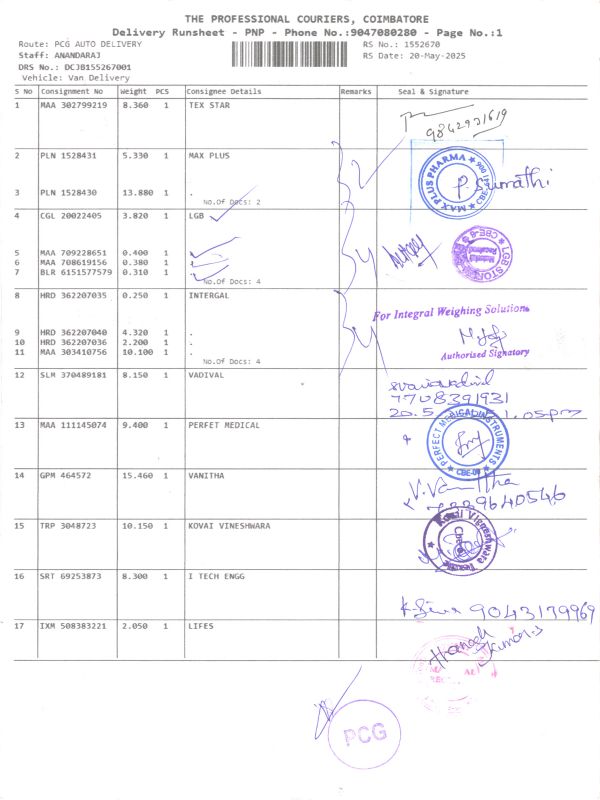 THE PROFESSIONAL COURIERS, COIMBATORE
Delivery Runsheet - PNP - Phone No.:9047080280 - Page No.:1
Route: PCG AUTO DELIVERY
RS No.: 1552670
Staff: ANANDARAJ
RS Date: 20-May-2025
DRS No.: DCJB155267001
Vehicle: Van Delivery
S No Consignment No Weight PCS Consignee Details Remarks Seal & Signature
1 MAA 302799219 8.360 1 TEX STAR
9842931619
2 PLN 1528431 5.330 1 MAX PLUS
MAX PLUS PHARMA
P. Sumathi
3 PLN 1528430 13.880 1 .
No.Of Docs: 2
4 CGL 20022405 3.820 1 LGB
5 MAA 709228651 0.400 1
6 MAA 708619156 0.380 1
7 BLR 6151577579 0.310 1
No.Of Docs: 4
8 HRD 362207035 0.250 1 INTERGAL
For Integral Weighing Solutions
9 HRD 362207040 4.320 1 .
10 HRD 362207036 2.200 1 .
11 MAA 303410756 10.100 1 .
No.Of Docs: 4
Authorised Signatory
12 SLM 370489181 8.150 1 VADIVAL
7708391931
20.5 1.05pm
13 MAA 111145074 9.400 1 PERFET MEDICAL
PERFECT MEDICAL INSTRUMENTS
14 GPM 464572 15.460 1 VANITHA
V. Vanittha
9640546
15 TRP 3048723 10.150 1 KOVAI VINESHWARA
Kovai Vigneshwara
16 SRT 69253873 8.300 1 I TECH ENGG
9043179969
17 IXM 508383221 2.050 1 LIFES
Kumar.s
PCG